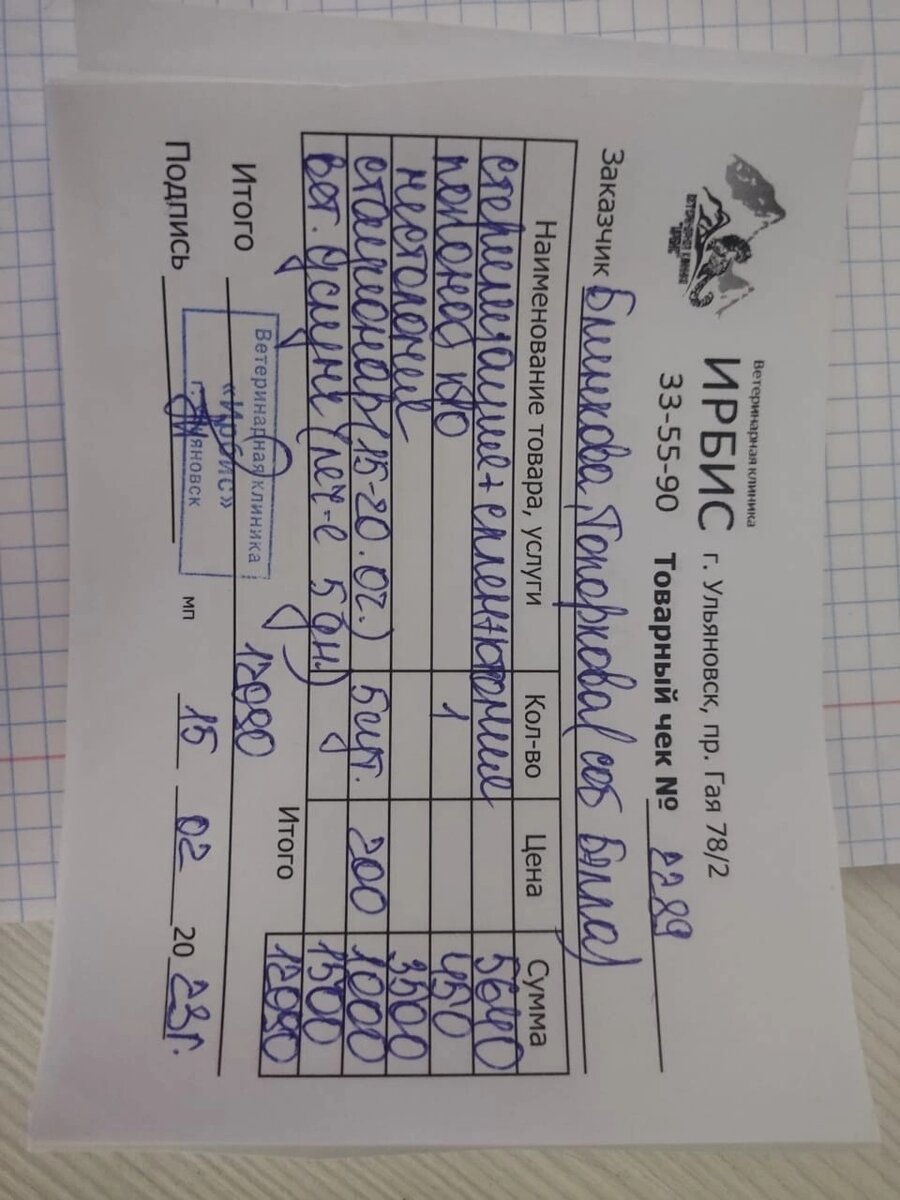 Ветеринарная клиника
ИРБИС г. Ульяновск, пр. Гая 78/2
33-55-90 Товарный чек № 2289
Заказчик Топоркова (соб Бэлла)
Наименование товара, услуги Кол-во Цена Сумма
стерилизация + спленэктомия 5640
попонка 1 450
гистология 3500
стационар (15-20.02.) 5шт. 200 1000
вет. услуги (леч-е 5 дн.) 1500
Итого 12090
Итого 12090
Ветеринарная клиника
«Ирбис»
г. Ульяновск
Подпись мп 15 02 2023г.